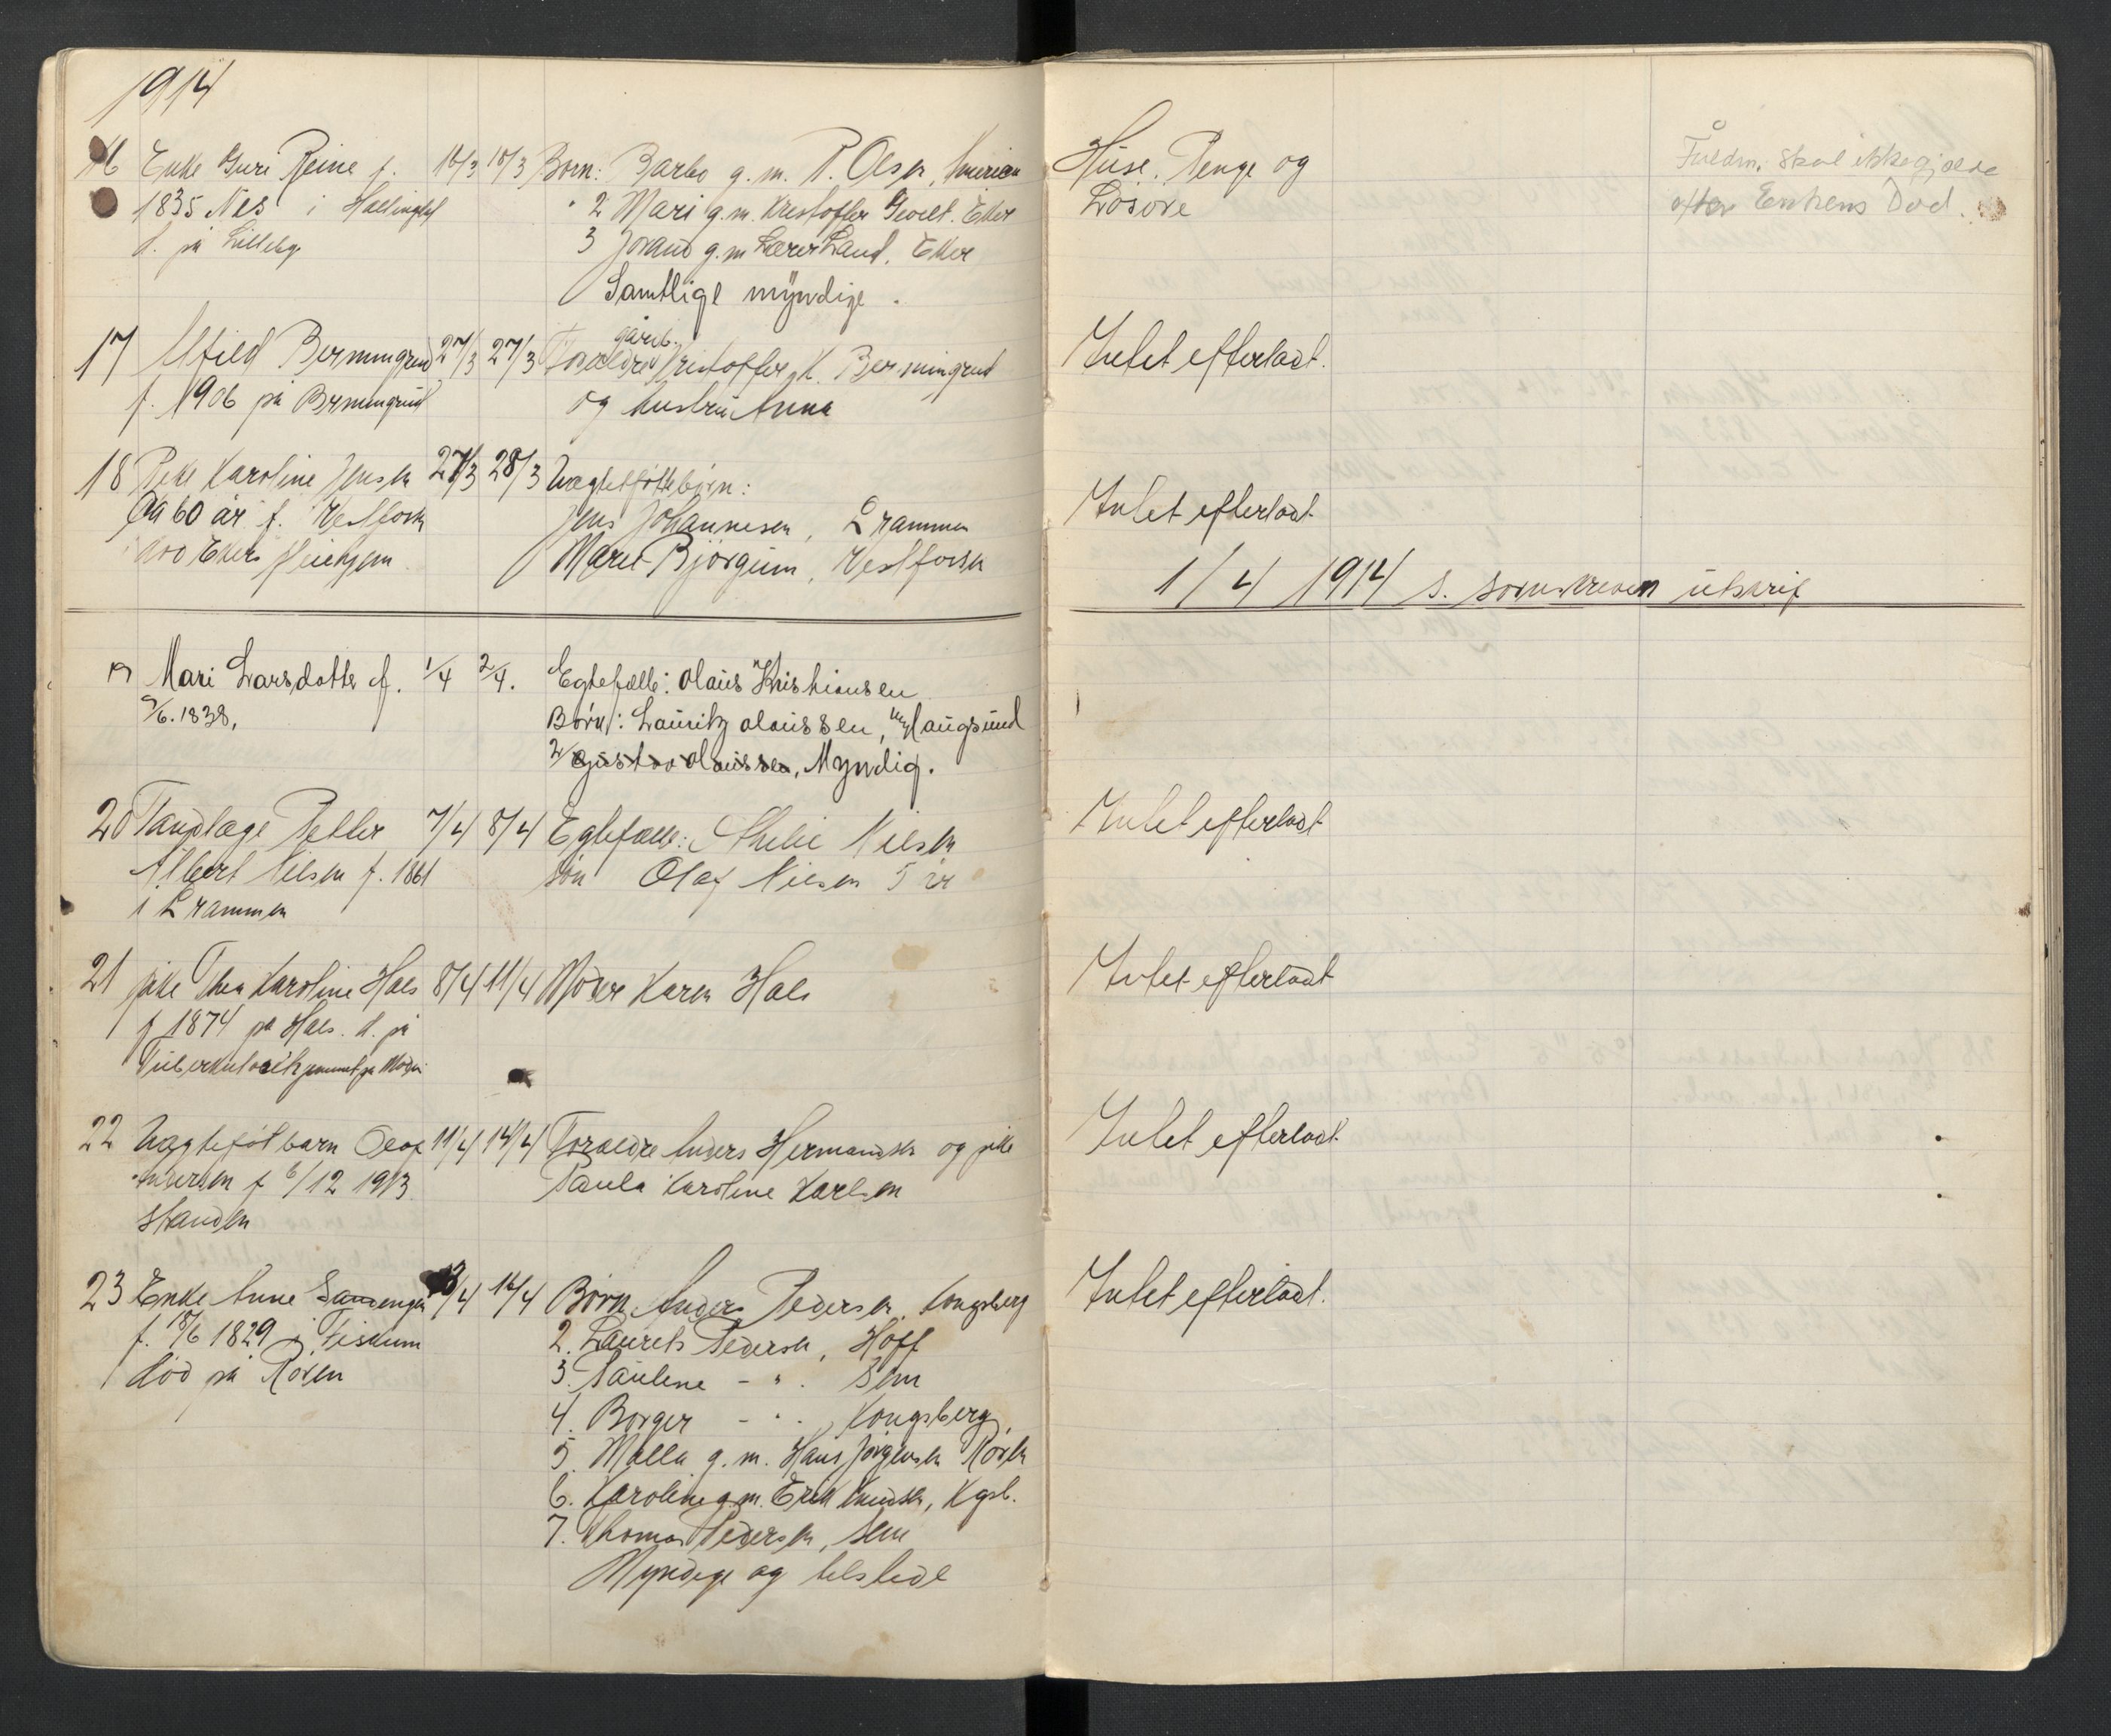 1914
16 Enke Guri Reine f. 16/3 18/3 Børn: Barbo g.m. P. Olsen, Amerika
1835 Nes i Hallingdal 2 Mari g.m. Kristoffer Eker
d. på 3 Jorand g.m. Lærer Land. Eker
Samtlige myndige.
Huse. Penge og
Løsøre
Fuldm. skal ikke gjælde
efter Enkens Død.
17 Alfild Bermingrud 27/3 27/3 Foræld​re gårdb. Kristoffer K. Bermingrud
f. 1906 på Bermingrud og hustru Anna
Intet efterladt.
18 Pike Karoline Jensen 27/3 28/3 Uægtefødte børn:
Ca 60 år f. Vestfossen Jens Johannesen, Drammen
død Ekers Pleiehjem Maret Bjørgum, Vestfossen
Intet efterladt
1/4 1914 s. sorenskriveren utskrift
19 Mari Larsdatter f. 1/4 2/4. Egtefælle: Olaus Kristiansen
9/6. 1838, Børn: Lauritz Olaussen, myn Haugsund
2/ Gustav Olaussen, Myndig.
20 Tandlæge Petter 7/4 8/4 Egtefælle: Nilsen
Albert Nilsen f. 1861 søn Olaf Nilsen 5 år
i Drammen
Intet efterladt
21 pike Thea Karoline Hals 8/4 11/4 Moder Karen Hals
f 1874 på Hals. d. på
Tuberkulosehjemmet på Modum
Intet efterladt
22 Uægtefødt barn Olaf 11/4 14/4 Forældre Anders Hermansen og pike
Andersen f 6/12 1913 Paula Karoline Karlsen
Standen
Intet efterladt
23 Enke Anne 13/4 16/4 Børn Anders Pedersen, Kongsberg
f. 18/6 1829 i Fiskum 2. Laurets Pedersen, Hoff
død på Røren 3. Pauline - " . Sem
4. Borger - " . , Kongsberg
5. Malla g.m. Hans Jørgensen Røren
6. Karoline g.m. Erik Knudsen, Kgsb.
7. Thomas Pedersen, Sem
Myndige og tilstede
Intet efterladt.